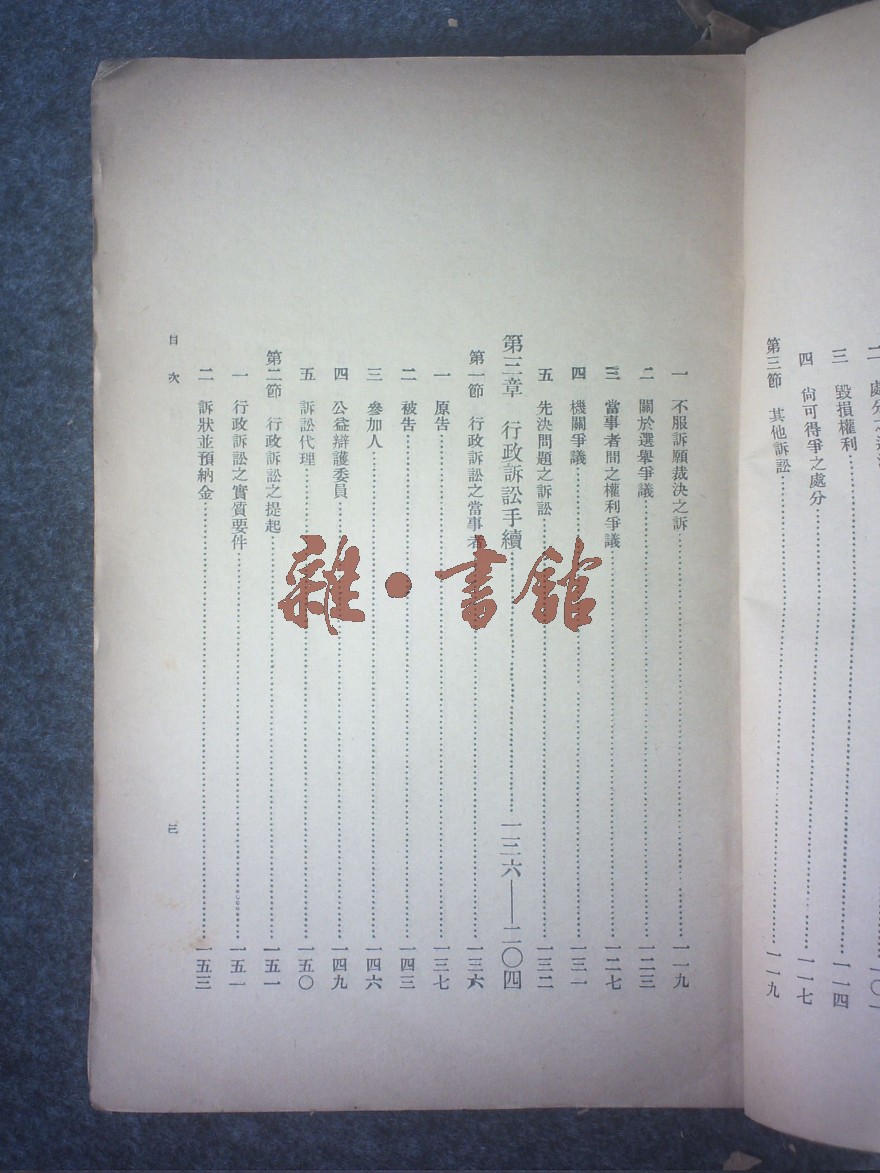 二　處分
三　毀損權利……一一四
四　尙可得爭之處分……一一七
第三節　其他訴訟……一一九
一　不服訴願裁決之訴……一一九
二　關於選舉爭議……一二三
三　當事者間之權利爭議……一二七
四　機關爭議……一三一
五　先決問題之訴訟……一三二
第三章　行政訴訟手續……一三六——二〇四
第一節　行政訴訟之當事者……一三六
一　原告……一三七
二　被告……一四三
三　參加人……一四六
四　公益辯護委員……一四九
五　訴訟代理……一五〇
第二節　行政訴訟之提起……一五一
一　行政訴訟之實質要件……一五一
二　訴狀並預納金……一五三
目次　三
雜·書館